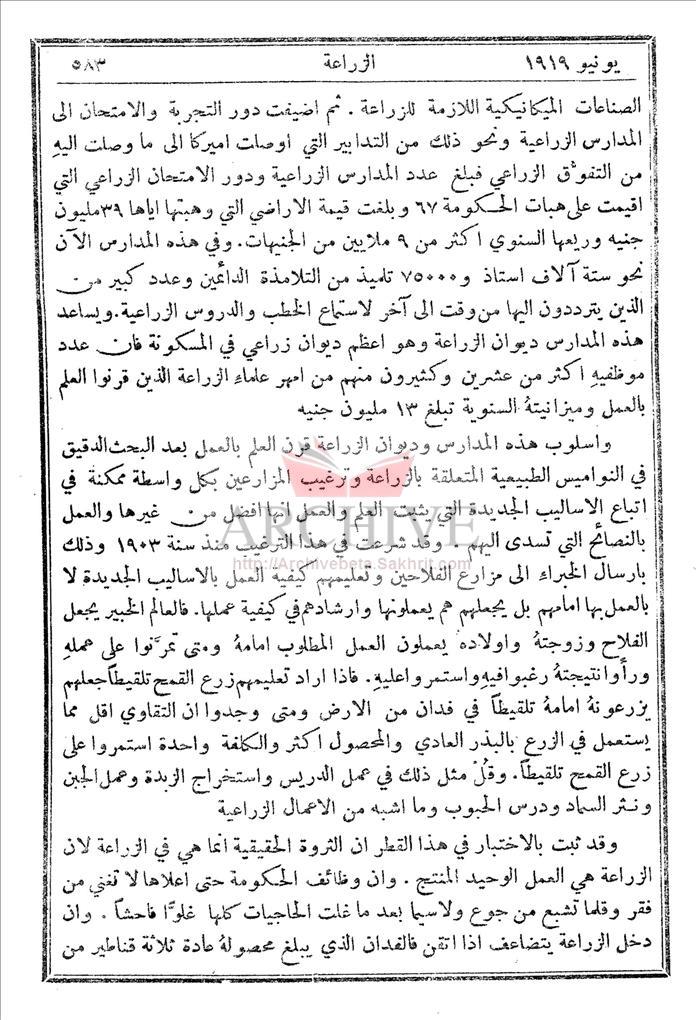 يونيو ١٩١٩ الزراعة ٥٨٣
الصناعات الميكانيكية اللازمة للزراعة . ثم اضيفت دور التجربة والامتحان الى
المدارس الزراعية ونحو ذلك من التدابير التي اوصلت اميركا الى ما وصلت اليهِ
من التفوُّق الزراعي فبلغ عدد المدارس الزراعية ودور الامتحان الزراعي التي
اقيمت على هبات الحكومة ٦٧ وبلغت قيمة الاراضي التي وهبتها اياها ٣٩ مليون
جنيه وريعها السنوي اكثر من ٩ ملايين من الجنيهات. وفي هذه المدارس الآن
نحو ستة آلاف استاذ و ٧٥٠٠٠ تلميذ من التلامذة الدائمين وعدد كبير من
الذين يترددون اليها من وقت الى آخر لاستماع الخطب والدروس الزراعية. ويساعد
هذه المدارس ديوان الزراعة وهو اعظم ديوان زراعي في المسكونة فان عدد
موظفيهِ اكثر من عشرين وكثيرون منهم من امهر علماء الزراعة الذين قرنوا العلم
بالعمل وميزانيتهُ السنوية تبلغ ١٣ مليون جنيه
واسلوب هذه المدارس وديوان الزراعة قرن العلم بالعمل بعد البحث الدقيق
في النواميس الطبيعية المتعلقة بالزراعة وترغيب المزارعين بكل واسطة ممكنة في
اتباع الاساليب الجديدة التي يثبت العلم والعمل انها افضل من غيرها والعمل
ARCHIVE
بالنصائح التي تسدى اليهم . وقد شرعت في هذا الترغيب منذ سنة ١٩٠٣ وذلك
http://Archivebeta.Sakhrit.com
بارسال الخبراء الى مزارع الفلاحين وتعليمهم كيفية العمل بالاساليب الجديدة لا
بالعمل بها امامهم بل يجعلهم هم يعملونها وارشادهم في كيفية عملها. فالعالم الخبير يجعل
الفلاح وزوجتهُ واولادهُ يعملون العمل المطلوب امامهُ ومتى تمرَّنوا على عملهِ
ورأوا نتيجتهُ رغبوا فيهِ واستمروا عليهِ. فاذا اراد تعليمهم زرع القمح تلقيطاً جعلهم
يزرعونهُ امامهُ تلقيطاً في فدان من الارض ومتى وجدوا ان التقاوي اقل مما
يستعمل في الزرع بالبذر العادي والمحصول اكثر والكلفة واحدة استمروا على
زرع القمح تلقيطاً. وقُلْ مثل ذلك في عمل الدريس واستخراج الزبدة وعمل الجبن
ونثر السماد ودرس الحبوب وما اشبه من الاعمال الزراعية
وقد ثبت بالاختبار في هذا القطر ان الثروة الحقيقية انما هي في الزراعة لان
الزراعة هي العمل الوحيد المنتج . وان وظائف الحكومة حتى اعلاها لا تغني من
فقر وقلما تشبع من جوع ولاسيما بعد ما غلت الحاجيات كلها غلوًّا فاحشاً . وان
دخل الزراعة يتضاعف اذا اتقن فالفدان الذي يبلغ محصولهُ عادة ثلاثة قناطير من